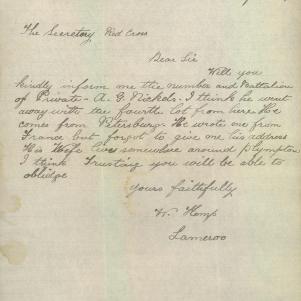 The Secretary Red Cross
Dear Sir
Will you
kindly inform me the number and Battalion
of Private - A. G. Nickols. I think he went
away with the fourth lot from here. He
comes from Petersburg. He wrote me from
France but forgot to give me his address
His Wife lives somewhere around Plympton
I think Trusting you will be able to
oblidge
Yours faithfully
W. Hemp
Lameroo